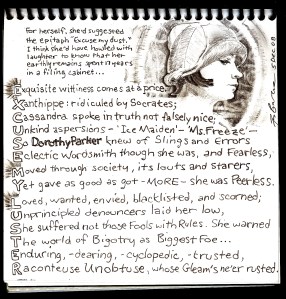 For herself, she'd suggested
the epitaph "Excuse my dust."
I think she'd have howled with
laughter to know that her
earthly remains spent 17 years
in a filing cabinet...
Exquisite wittiness comes at a price.
Xanthippe: ridiculed by Socrates;
Cassandra spoke in truth not falsely nice;
Unkind aspersions - 'Ice Maiden' - 'Ms. Freeze' -
So Dorothy Parker knew of Slings and Errors
Eclectic Wordsmith though she was, and Fearless,
Moved through society, its louts and starers,
Yet gave as good as got - MORE - she was Peerless.
Loved, wanted, envied, blacklisted, and scorned;
Unprincipled denouncers laid her low,
She suffered not those Fools with Rules. She warned
The world of Bigotry as Biggest Foe...
Enduring, -dearing, -cyclopedic, -trusted,
Raconteuse Unobtuse, whose Gleam's ne'er rusted.
5 DEC 08